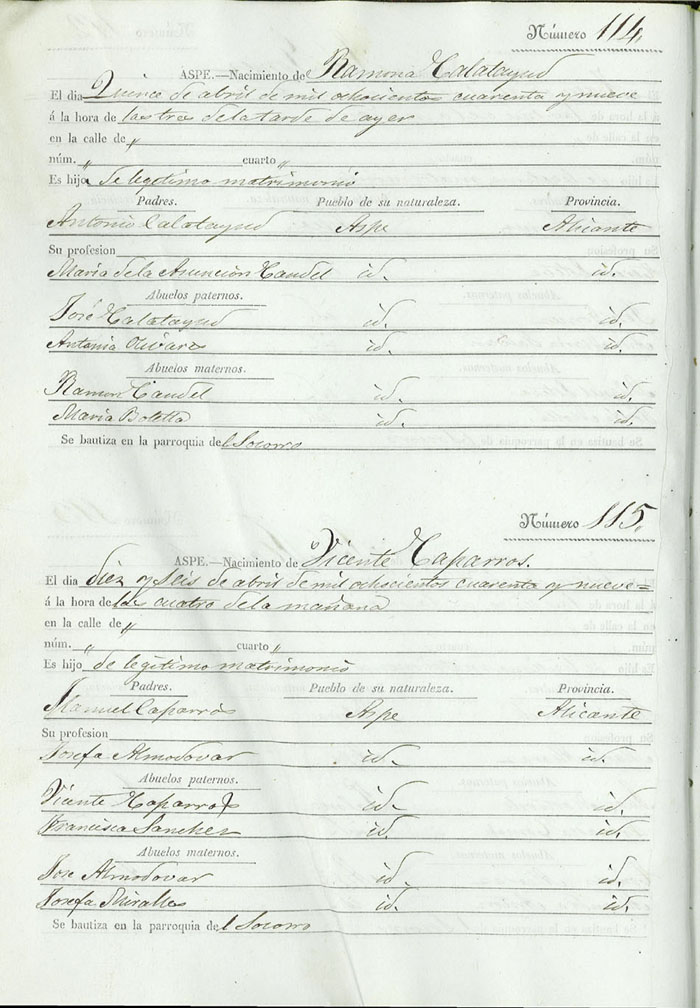 Número 114,
ASPE.—Nacimiento de Ramona Calatayud
El dia Quince de abril de mil ochocientos cuarenta y nueve
á la hora de las tres de la tarde de ayer
en la calle de „
núm. „ cuarto „
Es hijo de legítimo matrimonio
Padres. Pueblo de su naturaleza. Provincia.
Antonio Calatayud Aspe Alicante
Su profesion
Maria de la Asuncion Caudel id. id.
Abuelos paternos.
José Calatayud id. id.
Antonia id. id.
Abuelos maternos.
Ramon Caudel id. id.
Maria Botella id. id.
Se bautiza en la parroquia del Socorro
Número 115,
ASPE.—Nacimiento de Vicente Caparros.
El dia diez y seis de abril de mil ochocientos cuarenta y nueve=
á la hora de las cuatro de la mañana
en la calle de „
núm. „ cuarto „
Es hijo de legítimo matrimonio
Padres. Pueblo de su naturaleza. Provincia.
Manuel Caparrós Aspe Alicante
Su profesion
Josefa Almodovar id. id.
Abuelos paternos.
Vicente Caparros id. id.
Francisca Sanchez id. id.
Abuelos maternos.
Jose Almodovar id. id.
Josefa Miralles id. id.
Se bautiza en la parroquia del Socorro